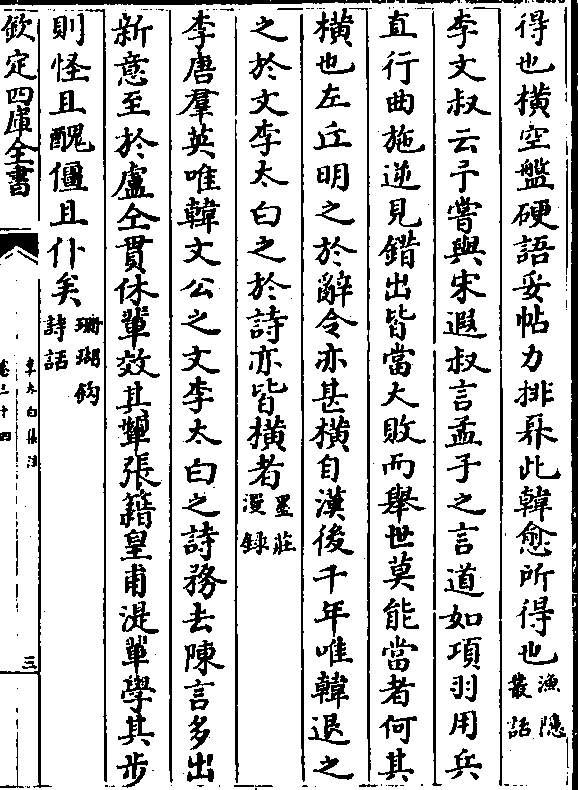 得也橫空盤硬語妥帖力排奡此韓愈所得也漁隱叢話
李文叔云予嘗與宋遐叔言孟子之言道如項羽用兵
直行曲施逆見錯出皆當大敗而舉世莫能當者何其
橫也左丘明之於辭令亦甚橫自漢後千年唯韓退之
之於文李太白之於詩亦皆橫者墨莊漫錄
李唐羣英唯韓文公之文李太白之詩務去陳言多出
新意至於盧仝貫休輩效其顰張籍皇甫湜輩學其步
則怪且醜僵且仆矣珊瑚鈎詩話
欽定四庫全書
李太白集注
卷三十四
三